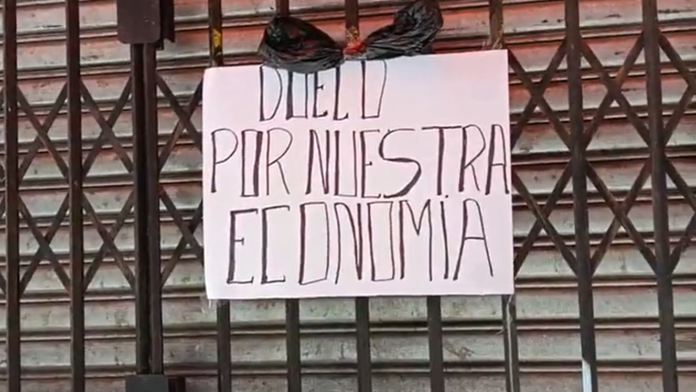 DUELO
POR NUESTRA
ECONOMÍA